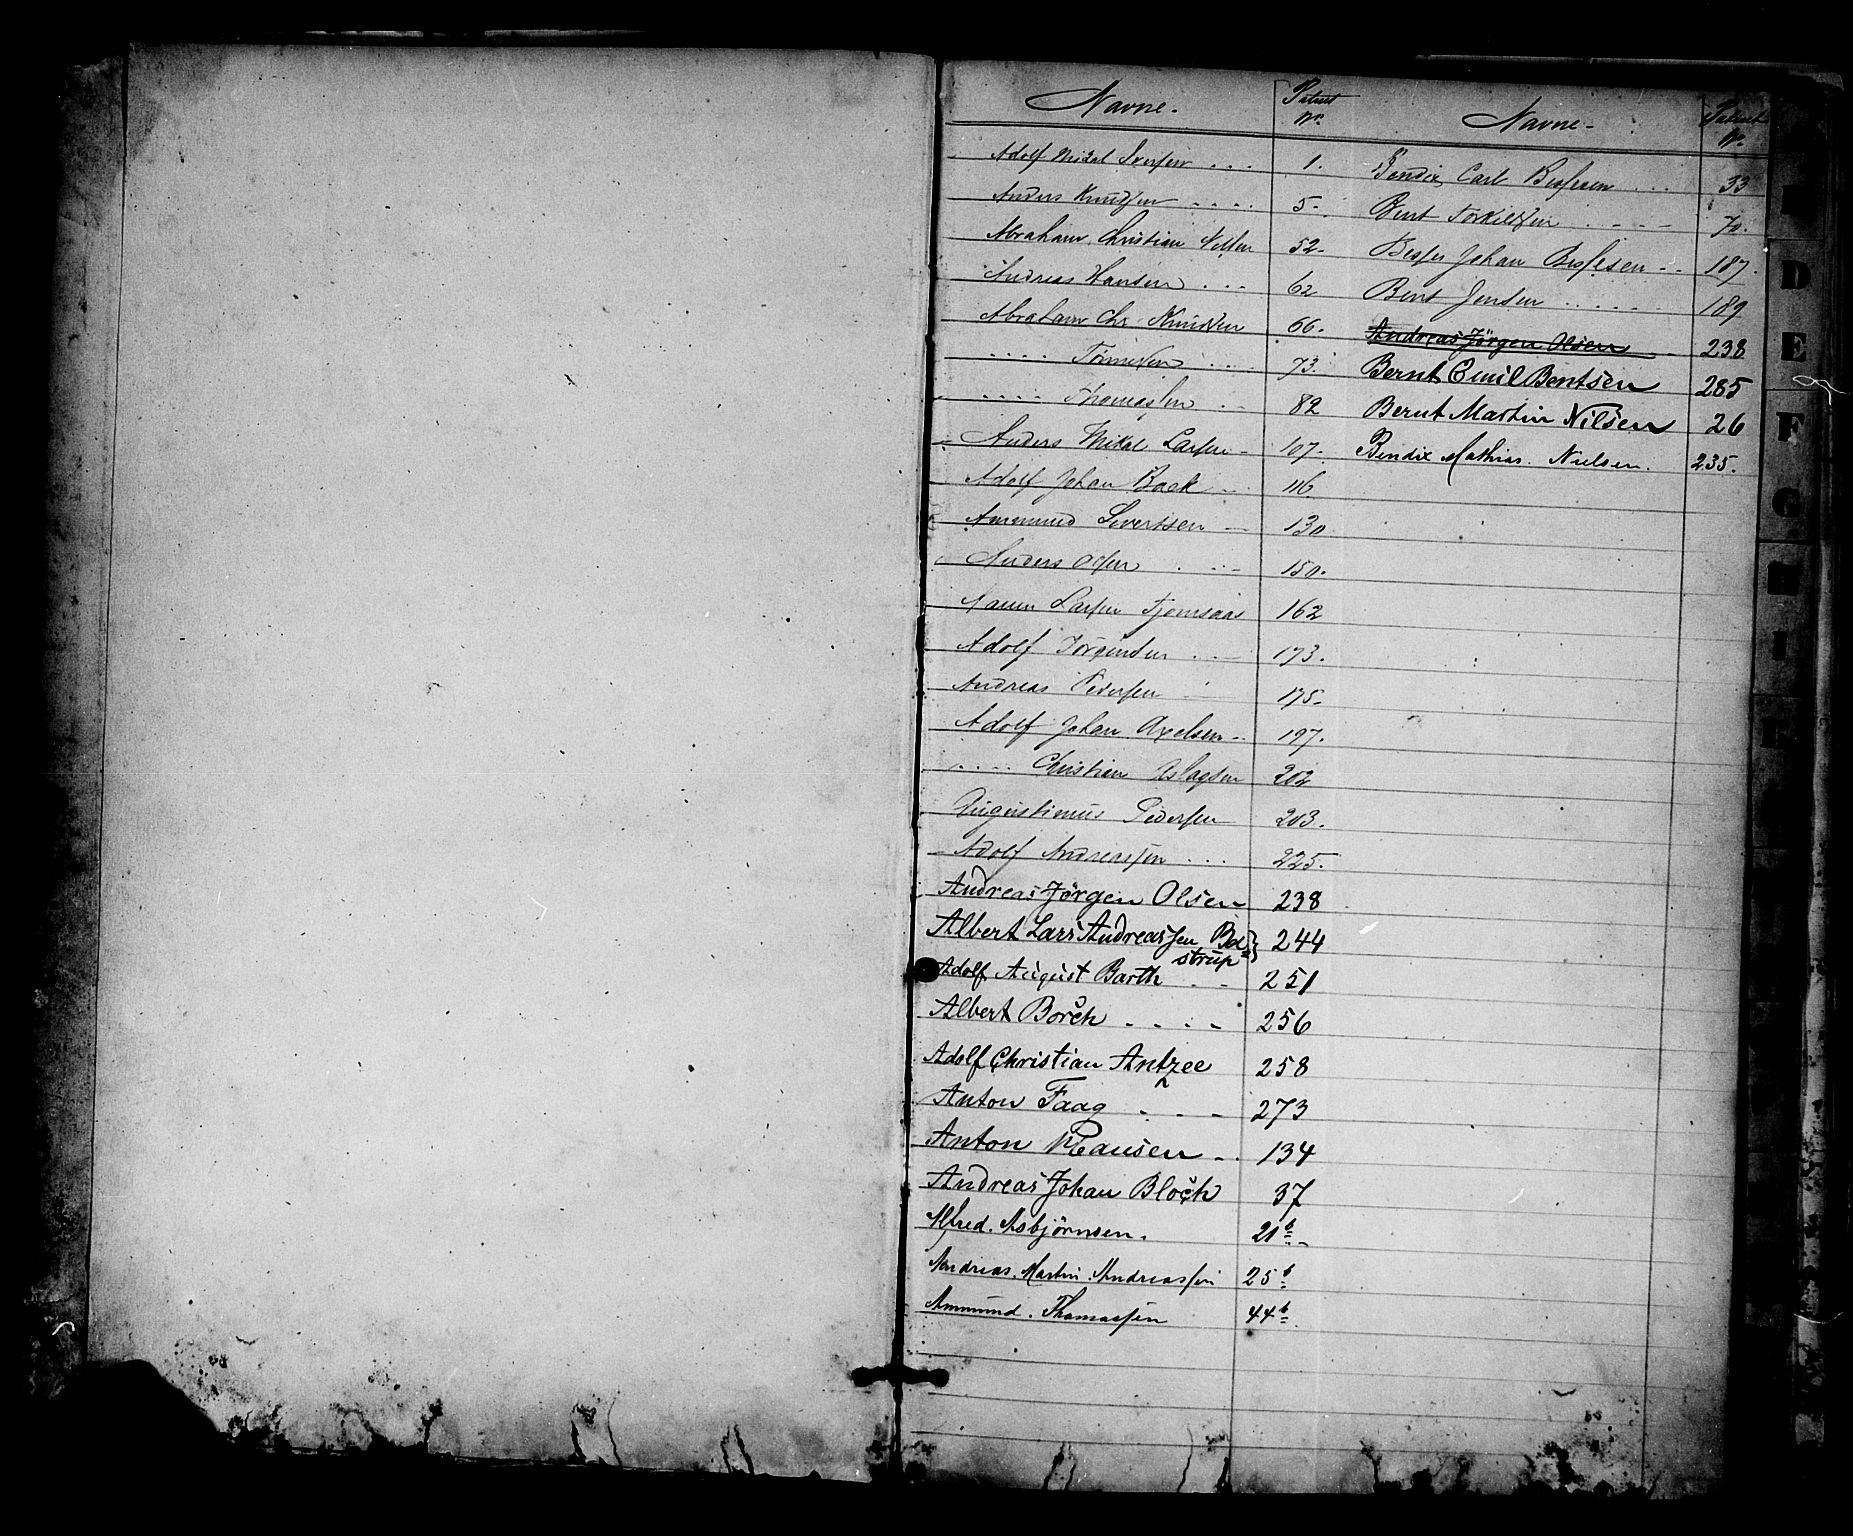 Navne. Patent No.
Adolf Mikal Iversen .... 1.
Anders Knudsen .... 5.
Abraham Christian Nilsen 52.
Andreas Hansen ... 62
Abraham Chr. Knudsen 66.
.... Tønnesen ... 73.
.... Thomassen .. 82
Anders Mikal Larsen - 107.
Adolf Johan Baek .. 116
Ammund Sivertsen - 130
Anders Olsen ... 150.
Aanen Larsen Fjomsaas 162
Adolf Jörgensen ... 173.
Andreas Pedersen - 175.
Adolf Johan Axelsen .. 197.
.... Christian Aslagsen 202
Augustinus Pedersen 203.
Adolf Andreassen ... 225.
Andreas Jörgen Olsen 238
Albert Lars Andreassen Bol= 244
strup
Adolf August Barth .. 251
Albert Borch .... 256
Adolf Christian Antzee 258
Anton Faag ... 273
Anton Clausen .. 134
Andreas Johan Bloch 37
Alfred. Asbjörnsen. 21 b
Andreas. Martin. Andreassen 25 b
Ammund. Thomassen 44 b
Navne. Patent No.
Bendix Carl Bessesen ... 33
Bent Torkildsen .... 70.
Besse Johan Bessesen .. 187.
Bent Jensen ..... 189
Andreas Jörgen Olsen 238
Bernt Emil Bentsen 285
Bernt Martin Nilsen 26
Bendix Mathias. Nielsen. 235.
D
E
F
G
H
I